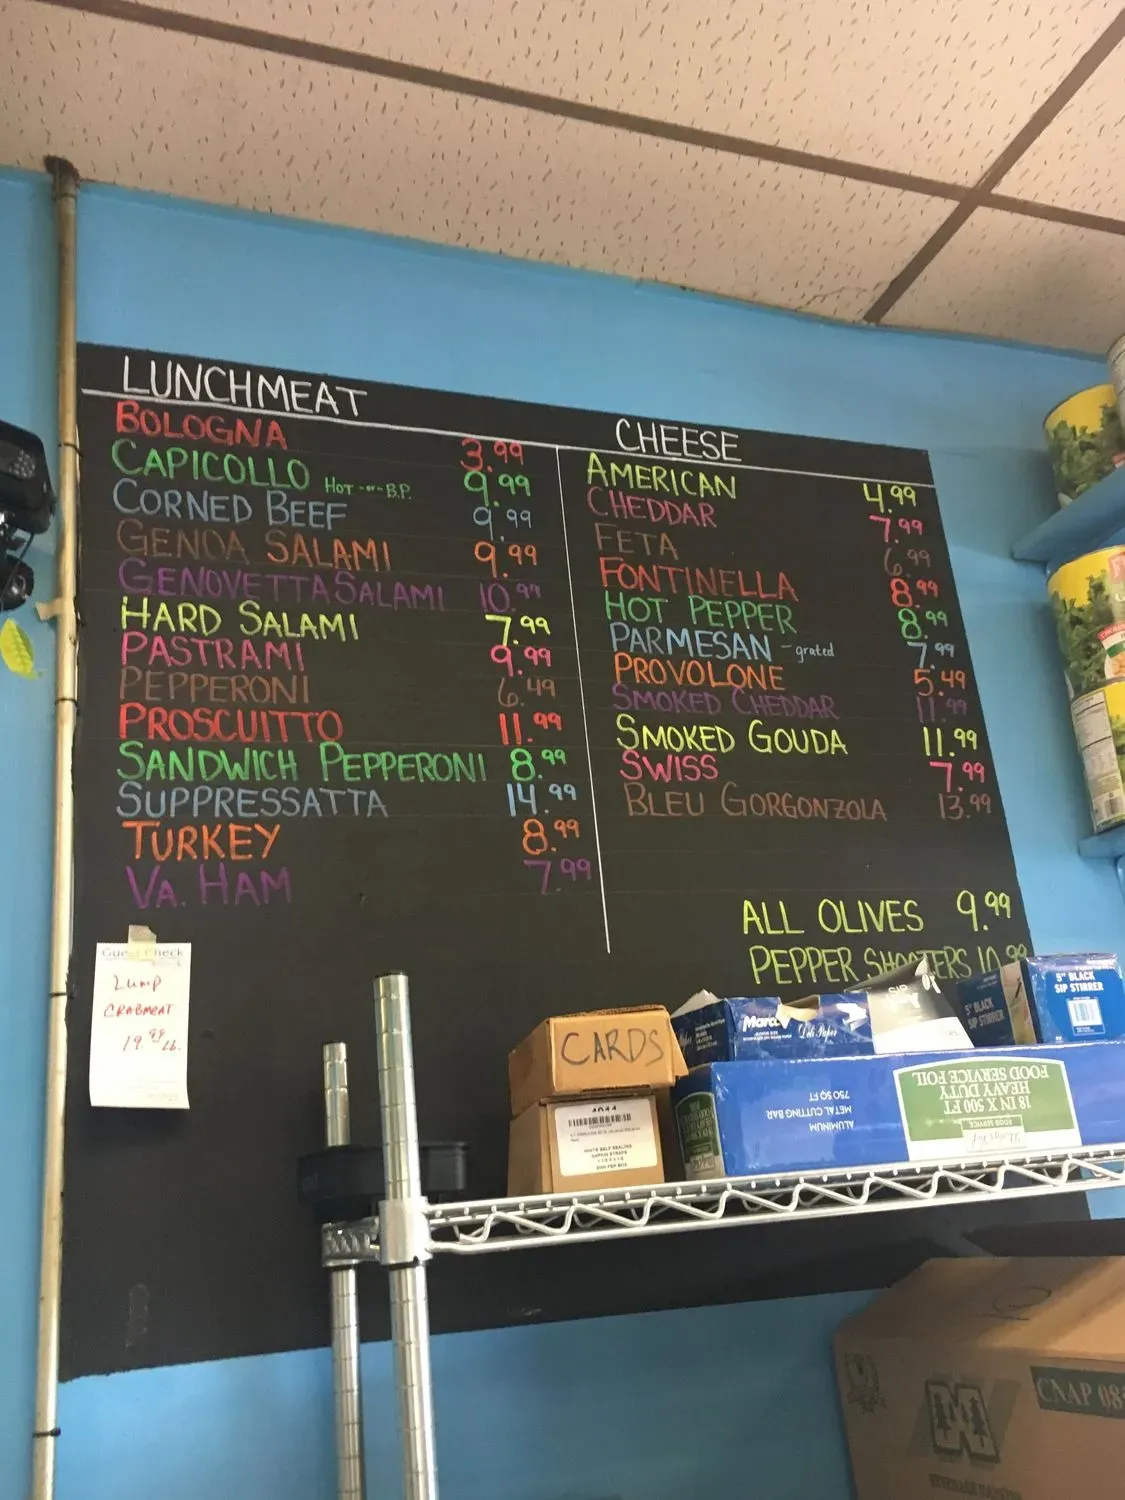 LUNCHMEAT
BOLOGNA 3.99
CAPICOLLO HOT -or- B.P. 9.99
CORNED BEEF 9.99
GENOA SALAMI 9.99
GENOVETTA SALAMI 10.99
HARD SALAMI 7.99
PASTRAMI 9.99
PEPPERONI 6.49
PROSCUITTO 11.99
SANDWICH PEPPERONI 8.99
SUPPRESSATTA 14.99
TURKEY 8.99
VA. HAM 7.99
CHEESE
AMERICAN 4.99
CHEDDAR 7.99
FETA 6.99
FONTINELLA 8.99
HOT PEPPER 8.99
PARMESAN - grated 7.99
PROVOLONE 5.49
SMOKED CHEDDAR 11.99
SMOKED GOUDA 11.99
SWISS 7.99
BLEU GORGONZOLA 13.99
ALL OLIVES 9.99
PEPPER SHOOTERS 10.99
Guest Check
LUMP
CRABMEAT
19.99 Lb.
CARDS
4044
WHITE SELF SEALING
NAPKIN STRAPS
Deli Paper
5" BLACK
SIP STIRRER
5" BLACK
SIP STIRRER
HEAVY DUTY
FOOD SERVICE FOIL
18 IN X 500 FT
FOOD SERVICE
ALUMINUM
METAL CUTTING BAR
750 SQ FT
CNAP